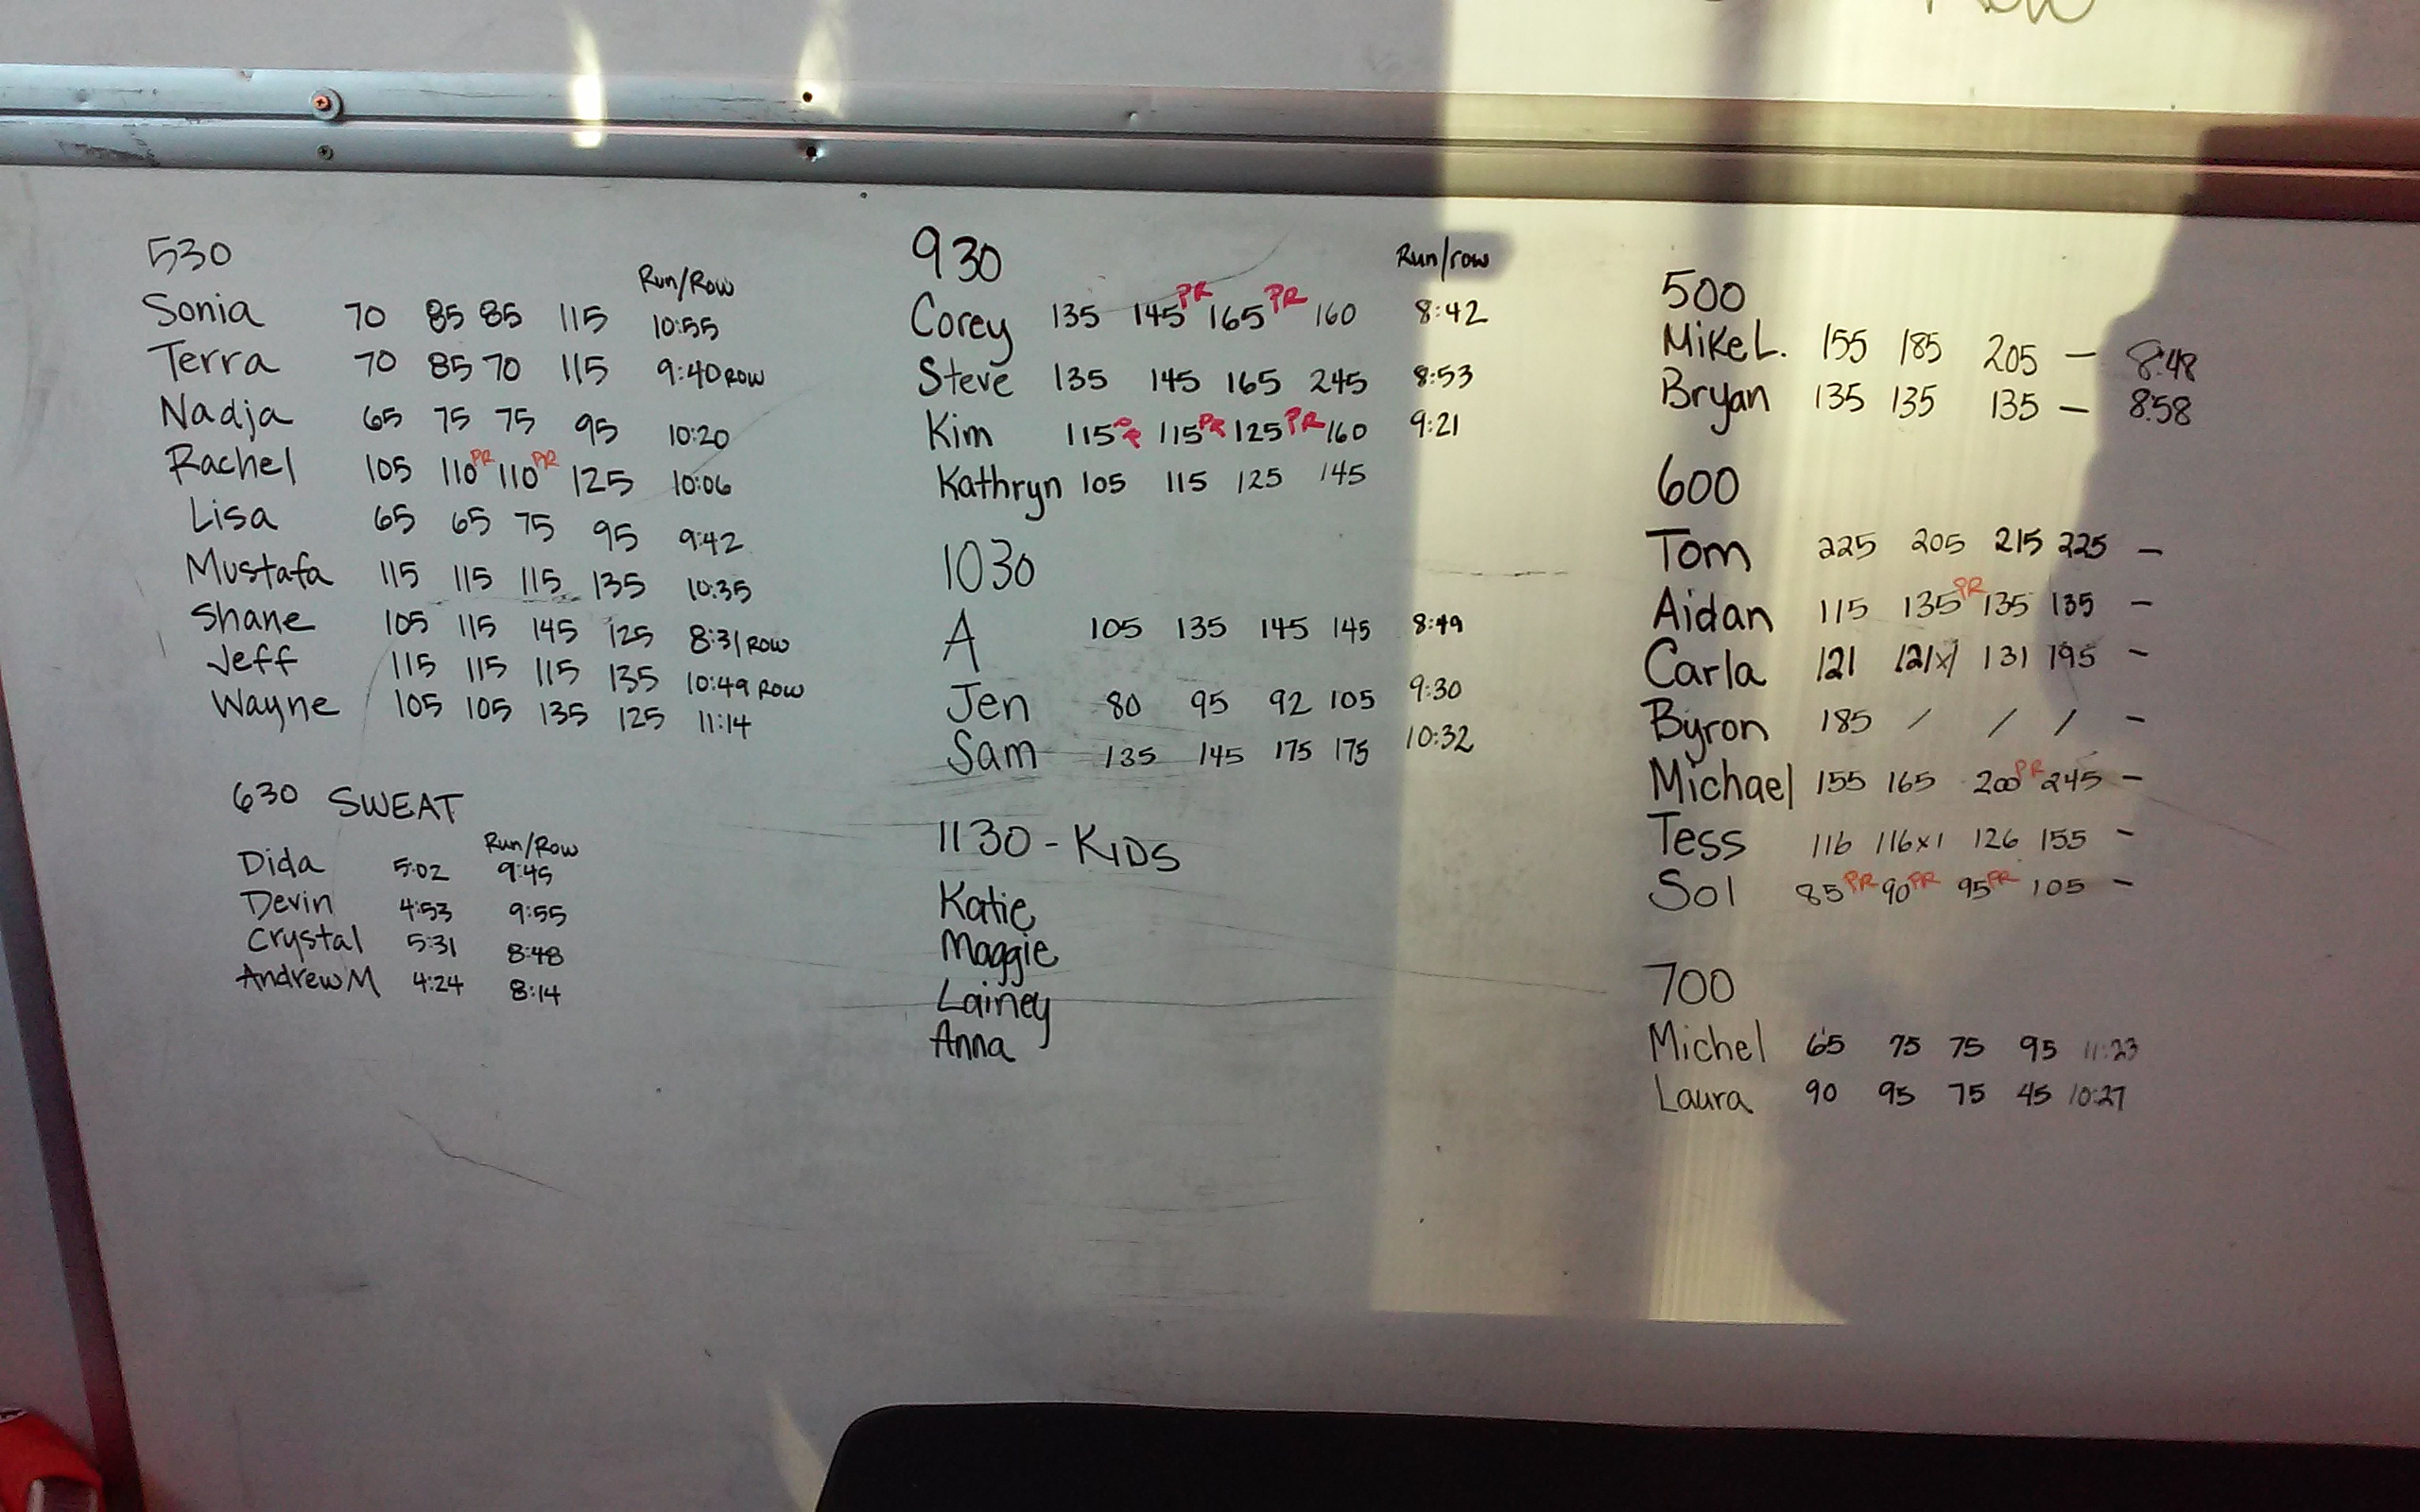 Row
530
Run/Row
Sonia 70 85 85 115 10:55
Terra 70 85 70 115 9:40 ROW
Nadja 65 75 75 95 10:20
Rachel 105 110 PR 110 PR 125 10:06
Lisa 65 65 75 95 9:42
Mustafa 115 115 115 135 10:35
Shane 105 115 145 125 8:31 ROW
Jeff 115 115 115 135 10:49 ROW
Wayne 105 105 135 125 11:14
630 SWEAT
Run/Row
Dida 5:02 9:45
Devin 4:53 9:55
Crystal 5:31 8:48
Andrew M 4:24 8:14
930
Run/row
Corey 135 145 PR 165 PR 160 8:42
Steve 135 145 165 245 8:53
Kim 115 PR 115 PR 125 PR 160 9:21
Kathryn 105 115 125 145
1030
A 105 135 145 145 8:49
Jen 80 95 92 105 9:30
Sam 135 145 175 175 10:32
1130 - KIDS
Katie
Maggie
Lainey
Anna
500
Mike L. 155 185 205 — 8:48
Bryan 135 135 135 — 8:58
600
Tom 225 205 215 225 —
Aidan 115 135 PR 135 135 —
Carla 121 121x1 131 195 —
Byron 185 / / / —
Michael 155 165 200 PR 245 —
Tess 116 116x1 126 155 —
Sol 85 PR 90 PR 95 PR 105 —
700
Michel 65 75 75 95 11:23
Laura 90 95 75 45 10:27